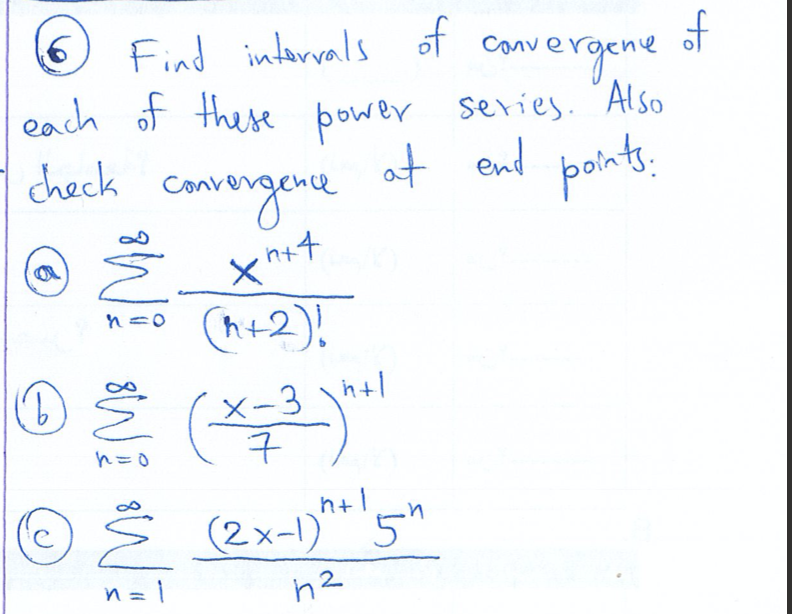 ⑥ Find intervals of convergence of
each of these power series. Also
check convergence at end points:
ⓐ ∞ Σ n=0 x^(n+4) / (n+2)!
ⓑ ∞ Σ n=0 ((x-3)/7)^(n+1)
ⓒ ∞ Σ n=1 (2x-1)^(n+1) 5^n / n^2